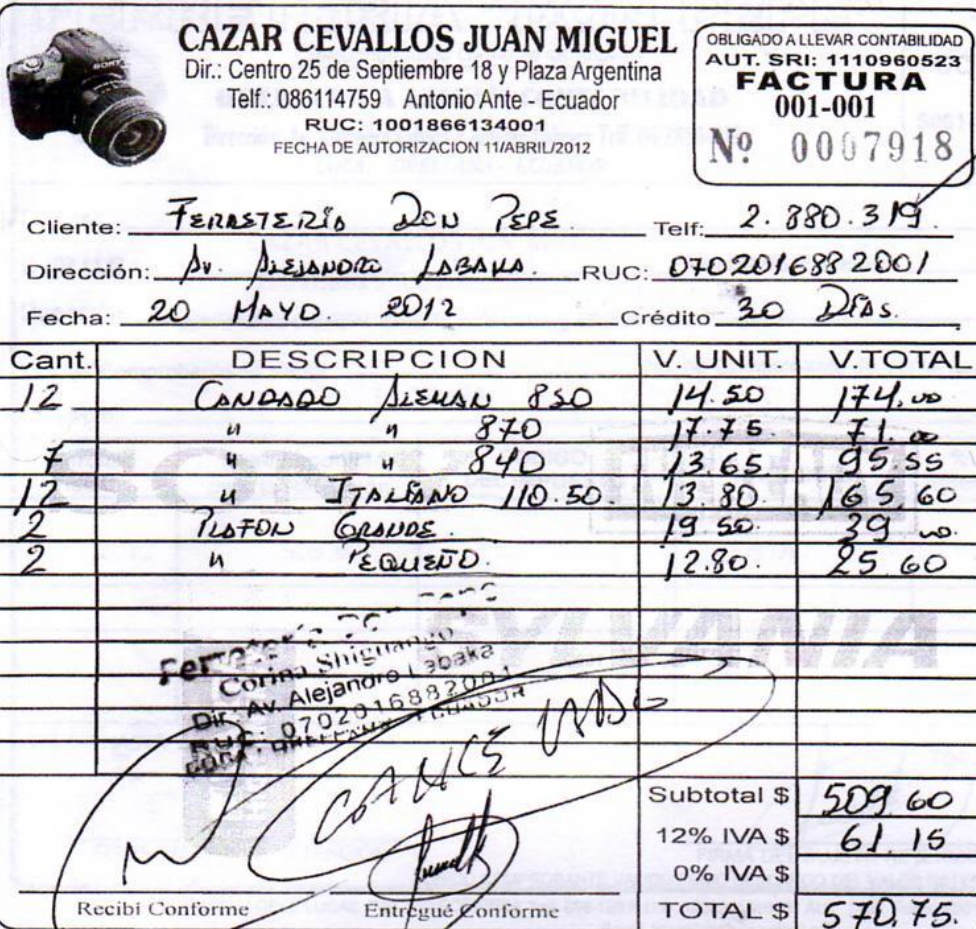 CAZAR CEVALLOS JUAN MIGUEL
Dir.: Centro 25 de Septiembre 18 y Plaza Argentina
Telf.: 086114759 - Antonio Ante - Ecuador
RUC: 1001866134001
FECHA DE AUTORIZACION 11/ABRIL/2012
OBLIGADO A LLEVAR CONTABILIDAD
AUT. SRI: 1110960523
FACTURA
001-001
Nº 0007918
SONY
Cliente: FERRETERÍA DON PEPE Telf: 2.880.319
Dirección: Av. ALEJANDRO LABAKA. RUC: 0702016882001
Fecha: 20 MAYO 2012 Crédito 30 DÍAS.
Cant. DESCRIPCION V. UNIT. V.TOTAL
12 CANDADO ALEMAN 850 14.50 174.00
" " 870 17.75 71.00
7 " " 840 13.65 95.55
12 " ITALIANO 110.50. 13.80. 165.60
2 PLAFON GRANDE. 19.50. 39.00.
2 " PEQUEÑO. 12.80. 25.60
Corina Shiguango
Dir.: Av. Alejandro Labaka
RUC: 0702016882001
ORELLANA - ECUADOR
CANCELADO
Subtotal $ 509.60
12% IVA $ 61.15
0% IVA $
TOTAL $ 570.75.
Recibí Conforme Entregué Conforme
SYLVANIA